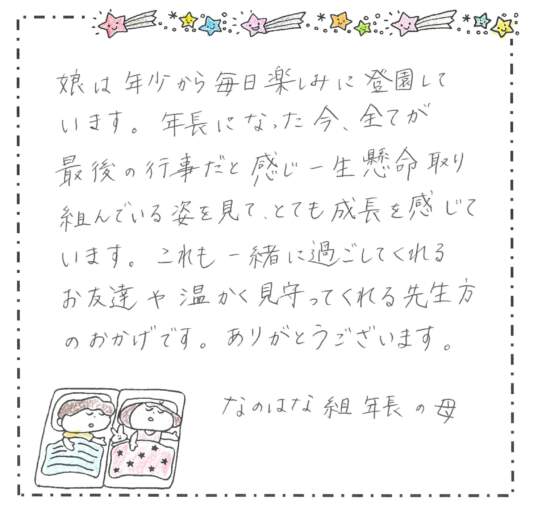 娘は年少から毎日楽しみに登園して
います。年長になった今、全てが
最後の行事だと感じ一生懸命取り
組んでいる姿を見て、とても成長を感じて
います。これも一緒に過ごしてくれる
お友達や温かく見守ってくれる先生方
のおかげです。ありがとうございます。
なのはな組年長の母